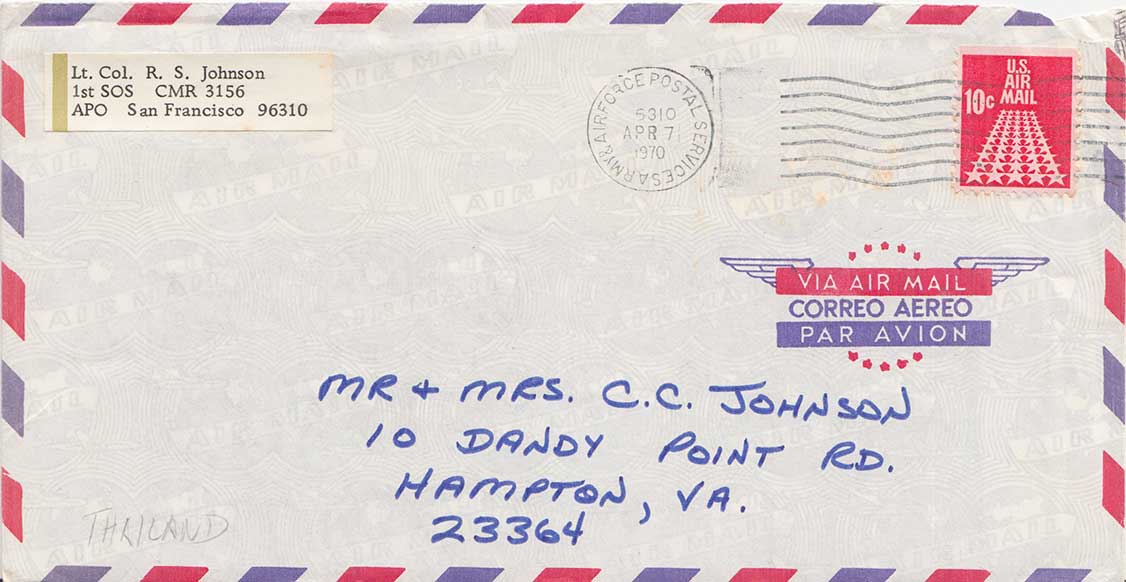 Lt. Col. R. S. Johnson
1st SOS CMR 3156
APO San Francisco 96310
ARMY & AIR FORCE POSTAL SERVICES
6310
APR 7
1970
U.S.
AIR
MAIL
10c
VIA AIR MAIL
CORREO AEREO
PAR AVION
MR + MRS. C.C. JOHNSON
10 DANDY POINT RD.
HAMPTON, VA.
23364
THAILAND